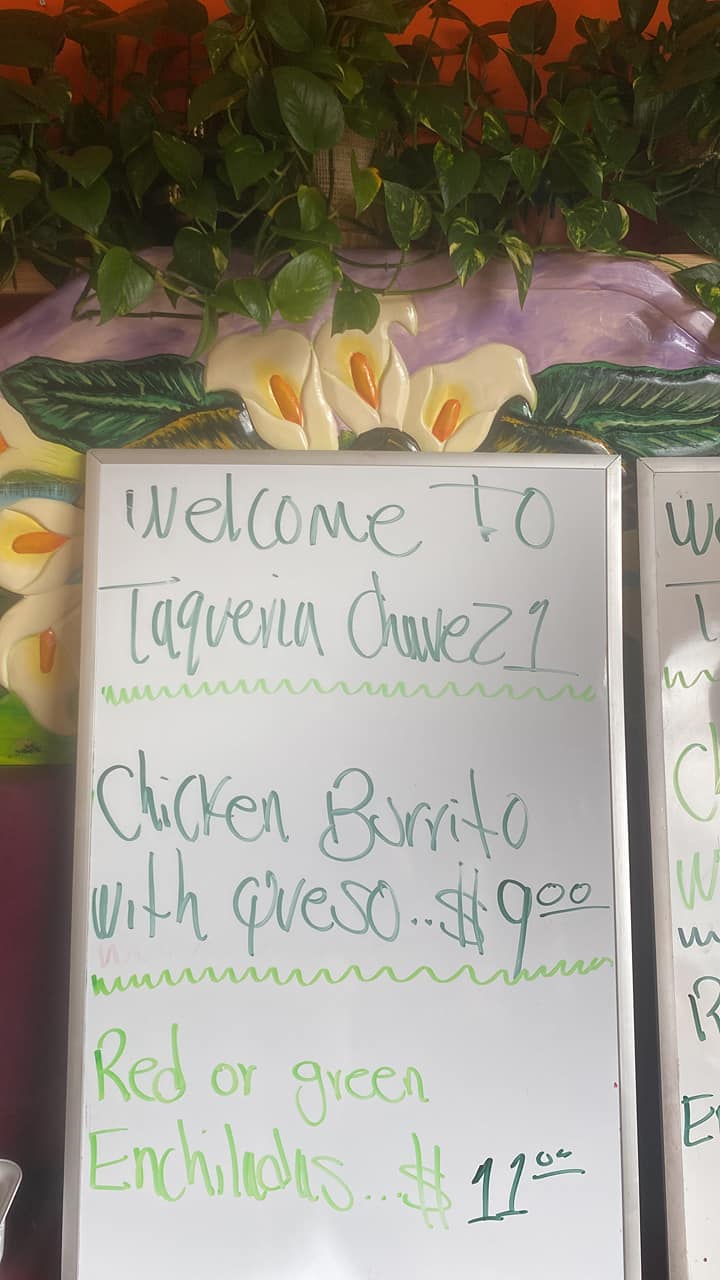 Welcome To
Taqueria Chavez 1
Chicken Burrito
with Queso..$ 9.00
Red or green
Enchiladas...$ 11.00